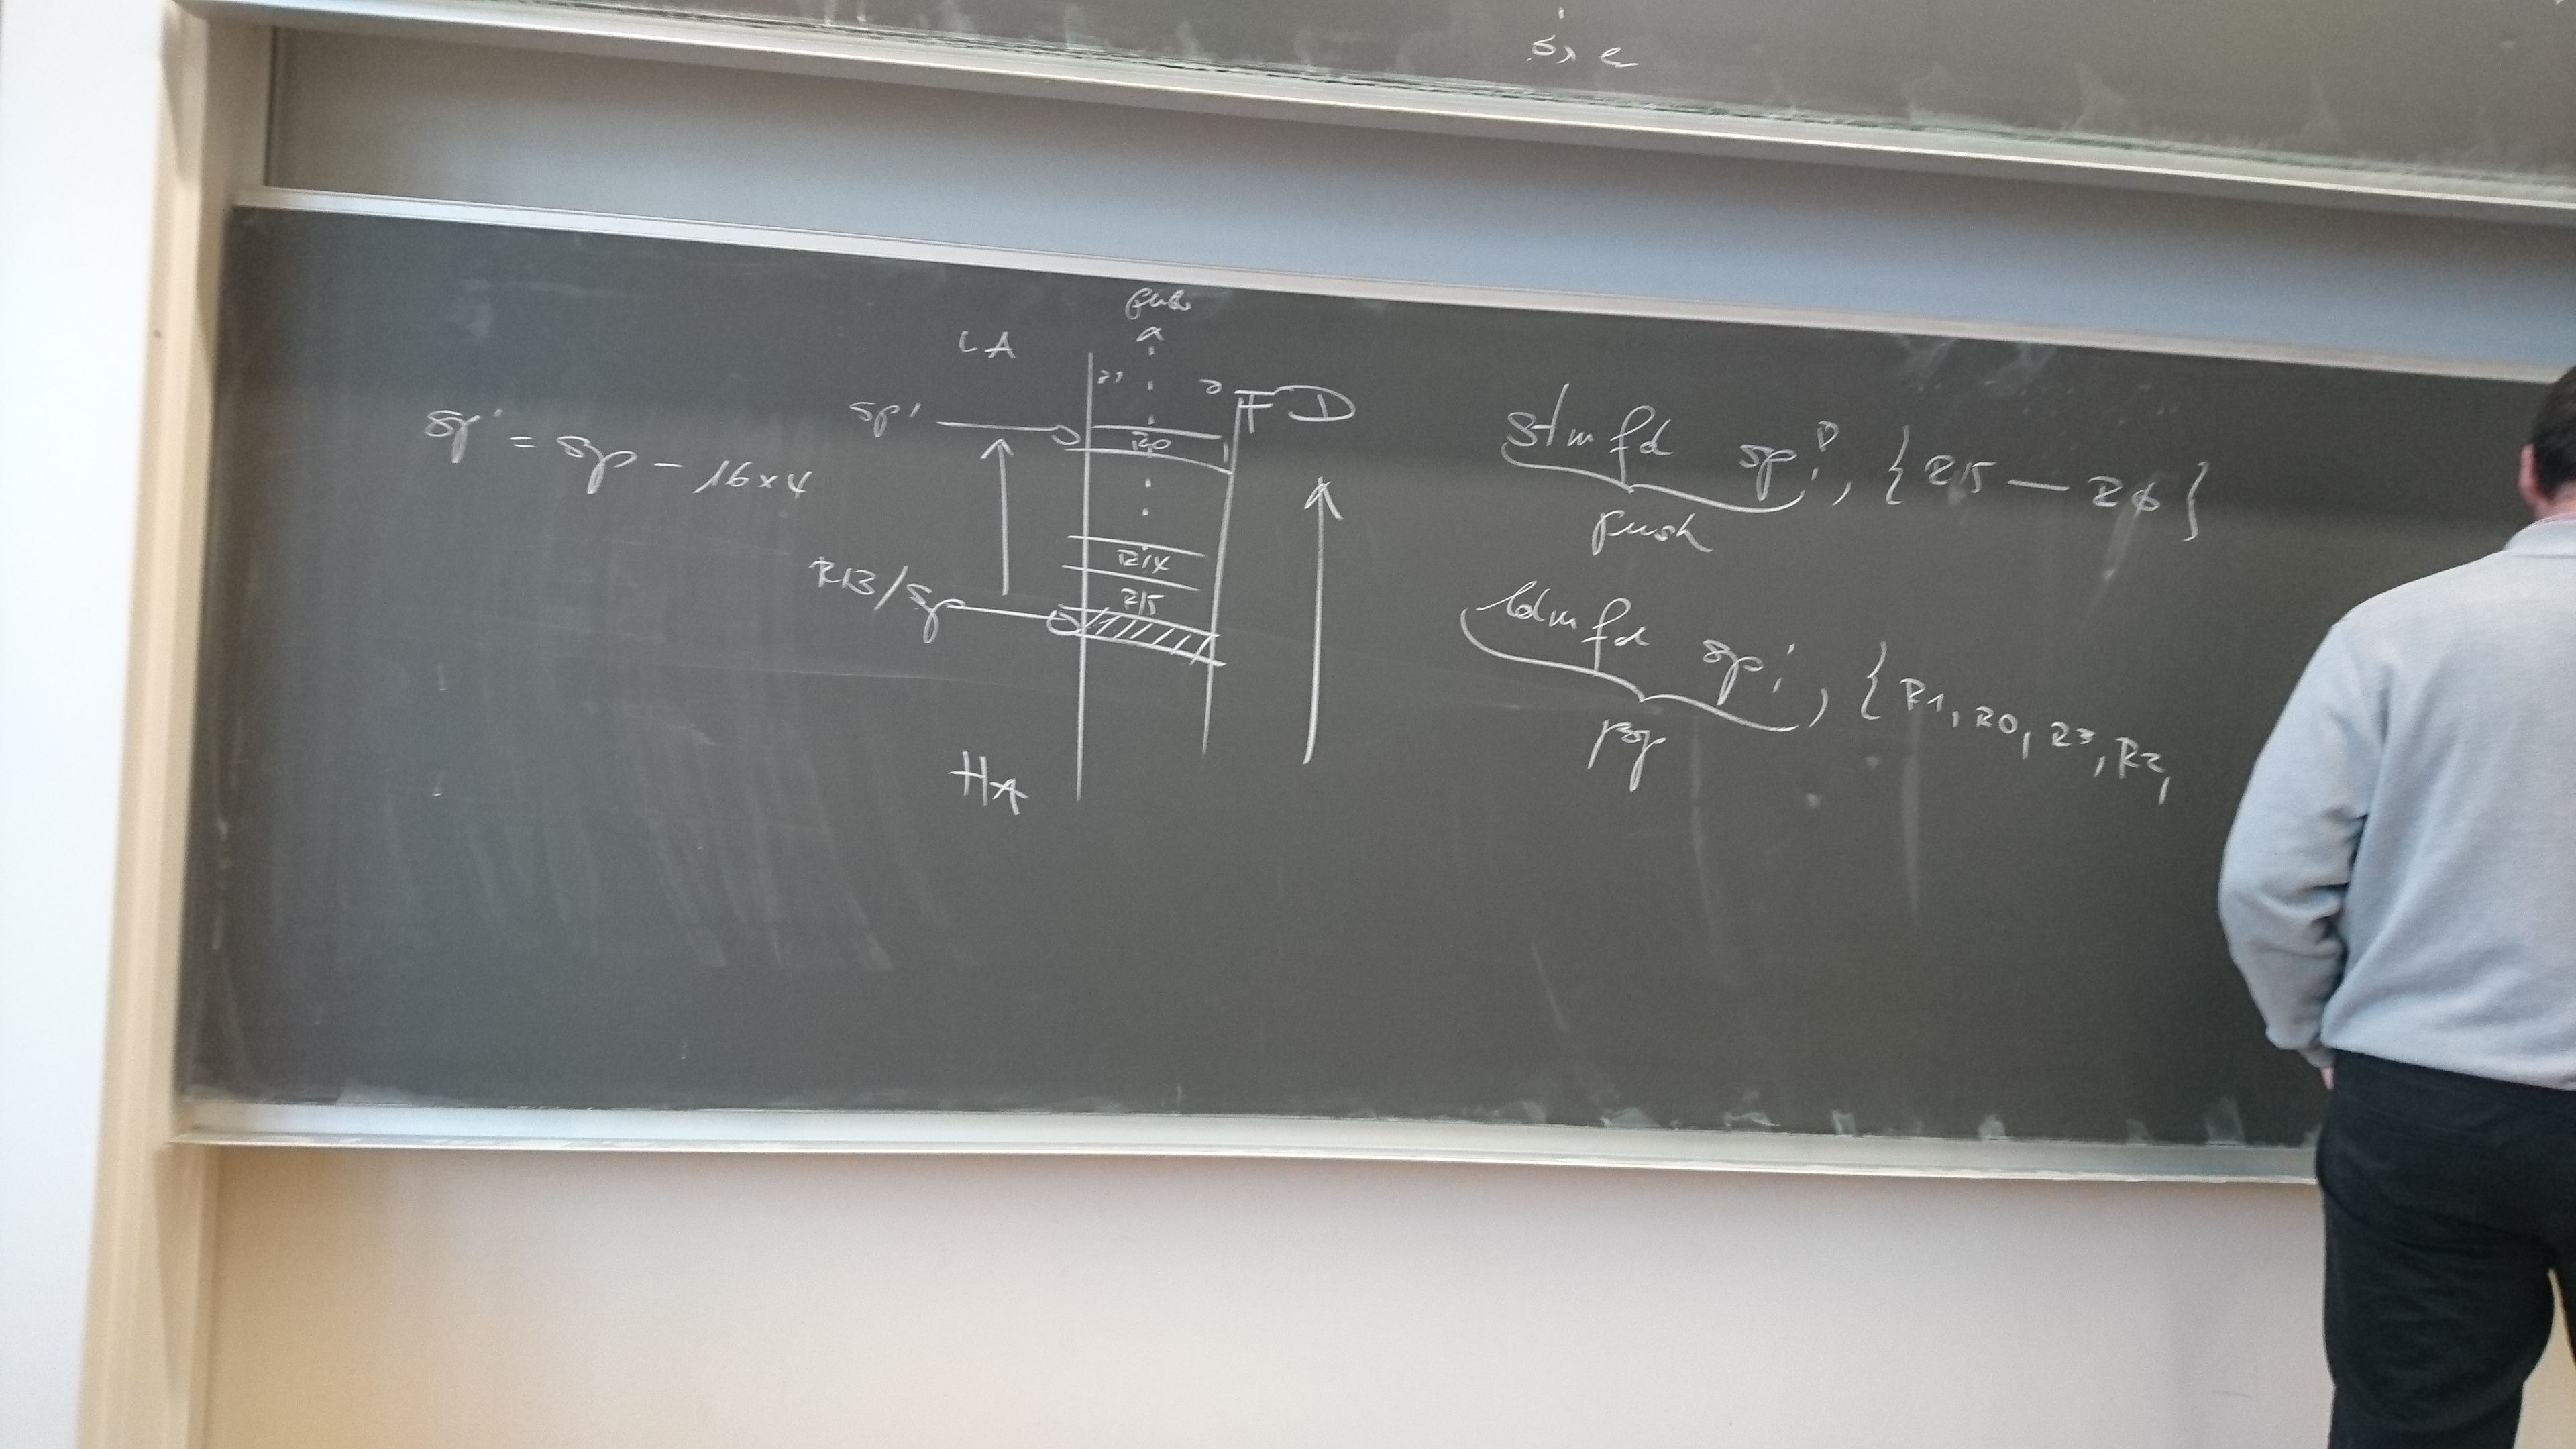 sp' = sp - 16×4
LA
push
31 0
sp'
FD
R0
R14
R15
R13/sp
HA
stmfd sp!, {R15 — R0}
push
ldmfd sp!, {R1, R0, R3, R2,
pop